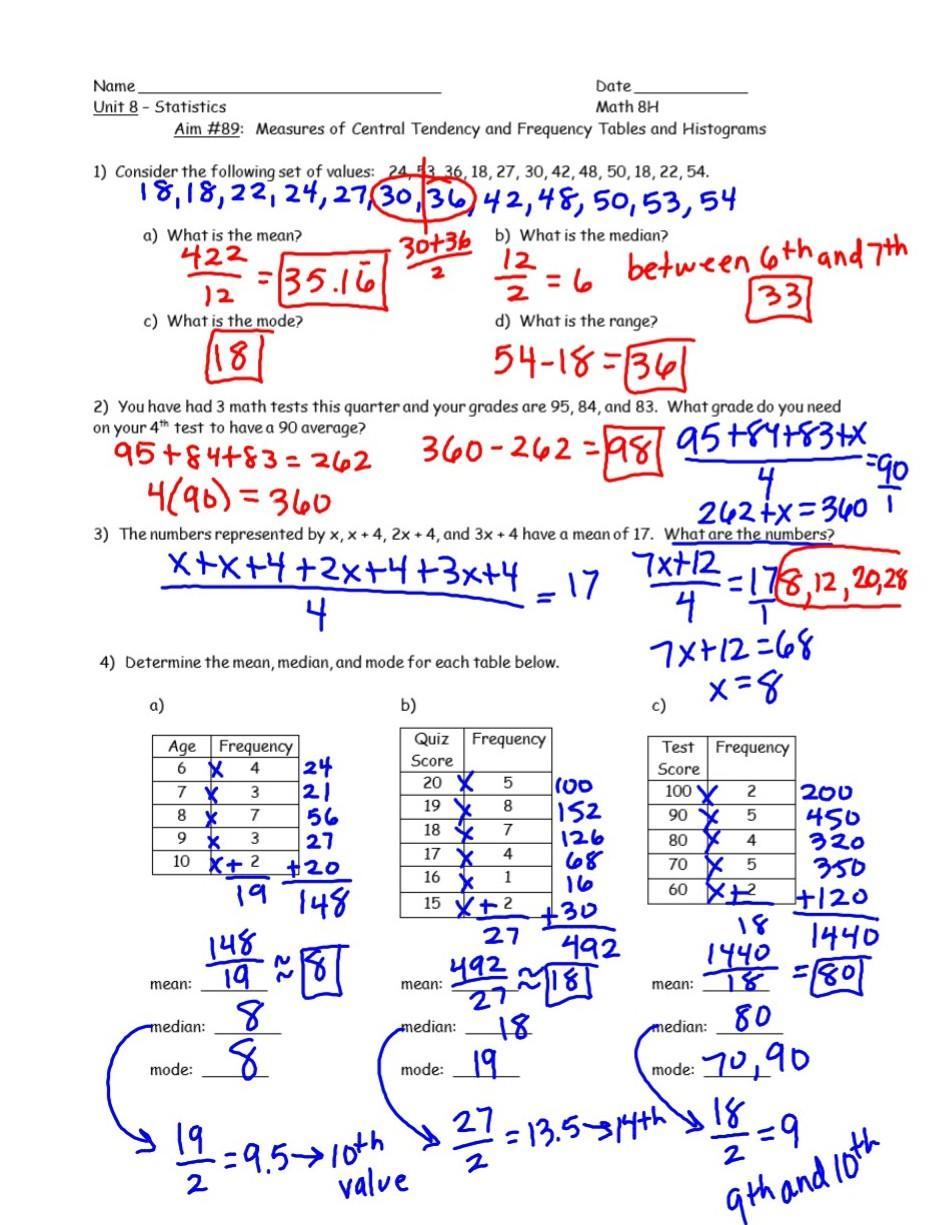 Name Date
Unit 8 – Statistics Math 8H
Aim #89: Measures of Central Tendency and Frequency Tables and Histograms
1) Consider the following set of values: 24, 53, 36, 18, 27, 30, 42, 48, 50, 18, 22, 54.
18, 18, 22, 24, 27, 30, 36, 42, 48, 50, 53, 54
a) What is the mean? 30+36/2 b) What is the median?
422/12 = 35.16̄ 12/2 = 6 between 6th and 7th
33
c) What is the mode? d) What is the range?
18 54-18 = 36
2) You have had 3 math tests this quarter and your grades are 95, 84, and 83. What grade do you need
on your 4th test to have a 90 average?
95+84+83 = 262 360-262 = 98 95+84+83+x/4 = 90/1
4(90) = 360 262+x = 360
3) The numbers represented by x, x + 4, 2x + 4, and 3x + 4 have a mean of 17. What are the numbers?
x+x+4+2x+4+3x+4/4 = 17 7x+12/4 = 17/1 8, 12, 20, 28
7x+12 = 68
x = 8
4) Determine the mean, median, and mode for each table below.
a) b) c)
Age Frequency
6 x 4 24
7 x 3 21
8 x 7 56
9 x 3 27
10 x + 2 +20
19 148
Quiz Score Frequency
20 x 5 100
19 x 8 152
18 x 7 126
17 x 4 68
16 x 1 16
15 x + 2 +30
27 492
Test Score Frequency
100 x 2 200
90 x 5 450
80 x 4 320
70 x 5 350
60 x + 2 +120
18 1440
mean: 148/19 ≈ 8 mean: 492/27 ≈ 18 mean: 1440/18 = 80
median: 8 median: 18 median: 80
mode: 8 mode: 19 mode: 70, 90
19/2 = 9.5 → 10th value
27/2 = 13.5 → 14th
18/2 = 9
9th and 10th